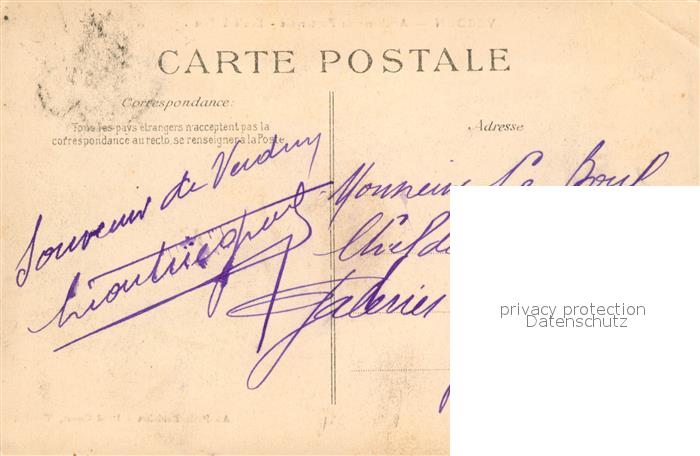 CARTE POSTALE
Correspondance:
Tous les pays étrangers n'acceptent pas la
correspondance au recto, se renseigner à la Poste
Adresse
Souvenir de Verdun
Monsieur Le
Chef de
Galeries
privacy protection
Datenschutz